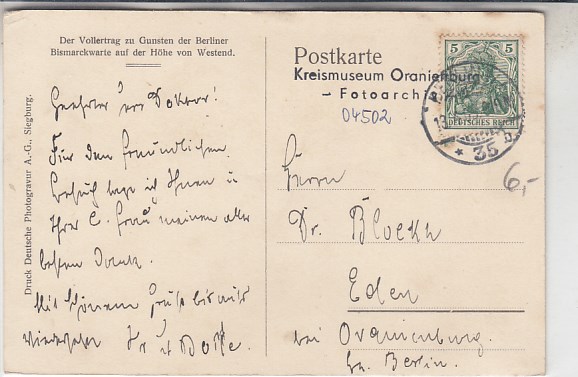 Der Vollertrag zu Gunsten der Berliner
Bismarckwarte auf der Höhe von Westend.
Druck Deutsche Photogravur A.-G., Siegburg.
Geehrter Herr Doktor!
Für den freundlichen
Besuch sage ich Ihnen u
Ihrer l. Frau meinen aller
besten Dank.
Mit schönem Gruß bis aufs
Wiedersehen Ihr
Postkarte
Kreismuseum Oranienburg
- Fotoarch
04502
5
DEUTSCHES REICH
13
* 35 b.
6,-
Herrn
Dr. Bloch
Eden
bei Oranienburg.
Berlin.